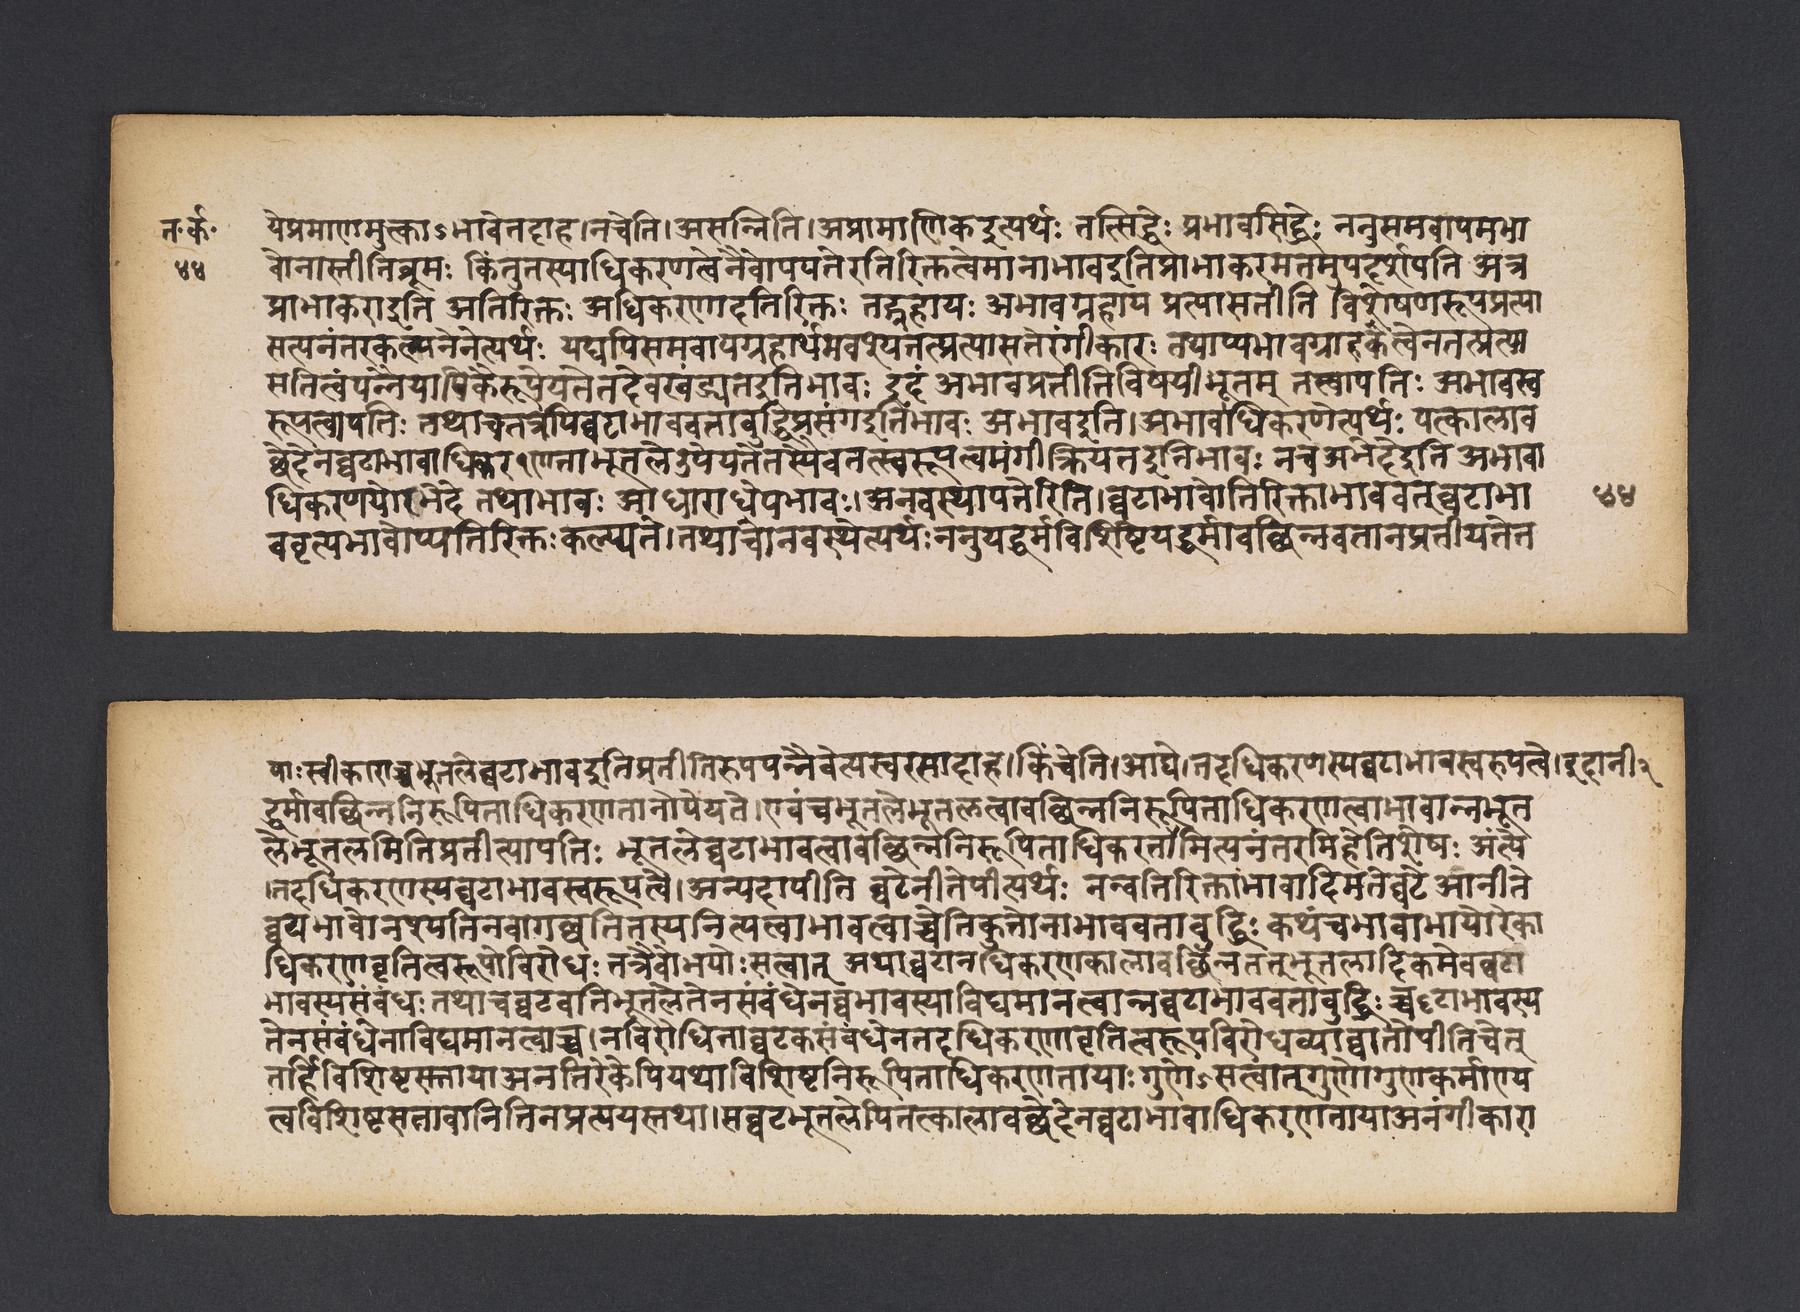 त॰ र्क॰
४४
येप्रमाणमुत्काऽभावेनदाह।नचेति।असन्निति।अप्रामाणिकइत्यर्थः तत्सिद्धेः प्रभावसिद्धेः ननुसमवायमभा
वोनास्तीतिब्रूमः किंतुतस्याधिकरणत्वेनैवोपपत्तेरतिरिक्तत्वेमानाभावइतिप्राभाकरमतमुपदर्शयति अत्र
प्राभाकराइति अतिरिक्तः अधिकरणादतिरिक्तः तद्ग्रहाय अभावग्रहाय प्रत्यासत्तीति विशेषणरूपप्रत्या
सत्यनंतरकल्पनेनेत्यर्थः यद्यपिसमवायग्रहार्थमवश्यंतत्प्रत्यासत्तेरंगीकारः तथाप्यभावग्राहकत्वेनतत्प्रत्या
सत्तित्वं इदं अभावप्रतीतिविषयीभूतम् तत्त्वापत्तिः अभावस्व
रूपत्वापत्तिः तथाचतत्रेपिघटाभाववत्ताबुद्धिप्रसंगइतिभावः अभावइति।अभावाधिकरणेत्यर्थः यत्कालाव
च्छेदेनघटाभावाधिकरणताभूतलेउपेयतेतस्यैवतत्स्वरूपत्वमंगीक्रियतइतिभावः नचअभेदेइति अभावा
धिकरणयोरभेदे तथाभावः आधाराधेयभावः।अनवस्थापत्तेरिति।घटाभावोतिरिक्ताभाववत्घटाभा
४४
ववृत्यभावोप्यतिरिक्तःकल्प्यते।तथाचानवस्थेत्यर्थःननुयद्धर्मविशिष्टेयद्धर्मावच्छिन्नवत्तानप्रतीयतेत
याःस्वीकाराच्चभूतलेघटाभावइतिप्रतीतिरुपपन्नैवेत्यस्वरसादाह।किंचेति।आद्ये।तदधिकरणस्यघटाभावस्वरुपत्वे।इदानी२
द्धर्मावच्छिन्ननिरूपिताधिकरणतानोपेयते।एवंचभूतलेभूतलत्वावच्छिन्ननिरूपिताधिकरणत्वाभावान्नभूत
लेभूतलमितिप्रतीत्यापत्तिः भूतलेघटाभावत्वावच्छिन्ननिरूपिताधिकरतामित्यनंतरमिहेतिशेषः अंत्ये
।तदधिकरणस्यघटाभावस्वरूपत्वे।अन्यदापीति घटेनीतेपीत्यर्थः नन्वतिरिक्ताभावादिमतेघटे आनीते
घटाभावोनश्यतिनवागच्छतितस्यनित्यत्वाभावत्वाच्चेतिकुतोनाभाववत्ताबुद्धिः कथंचभावाभायोरेका
धिकरणवृत्तित्वरूपोविरोधः तत्रैवोभयोःसत्वात् अथाघटानधिकरणकालावच्छिन्नतत्तुभूतलादिकमेवघटा
भावस्यसंबंधः तथाचघटवतिभूतलेतेनसंबंधेनघभावस्याविद्यमानत्वान्नघटाभाववत्ताबुद्धिः घटाभावस्य
तेनसंबंधेनाविद्यमानत्वाच्च।नविरोधिताघटकसंबंधेनतदधिकरणावृत्तित्वरूपविरोधव्याघातोपीतिचेत्
तर्हिविशिष्टसत्तायाअनतिरेकेपियथाविशिष्टनिरूपिताधिकरणतायाःगुणेऽसत्वात्गुणोगुणकर्माण्य
त्वविशिष्टसत्तावानितिनप्रत्ययस्तथा।सघटभूतलेपितत्कालावच्छेदेनघटाभावाधिकरणतायाअनंगीकारा